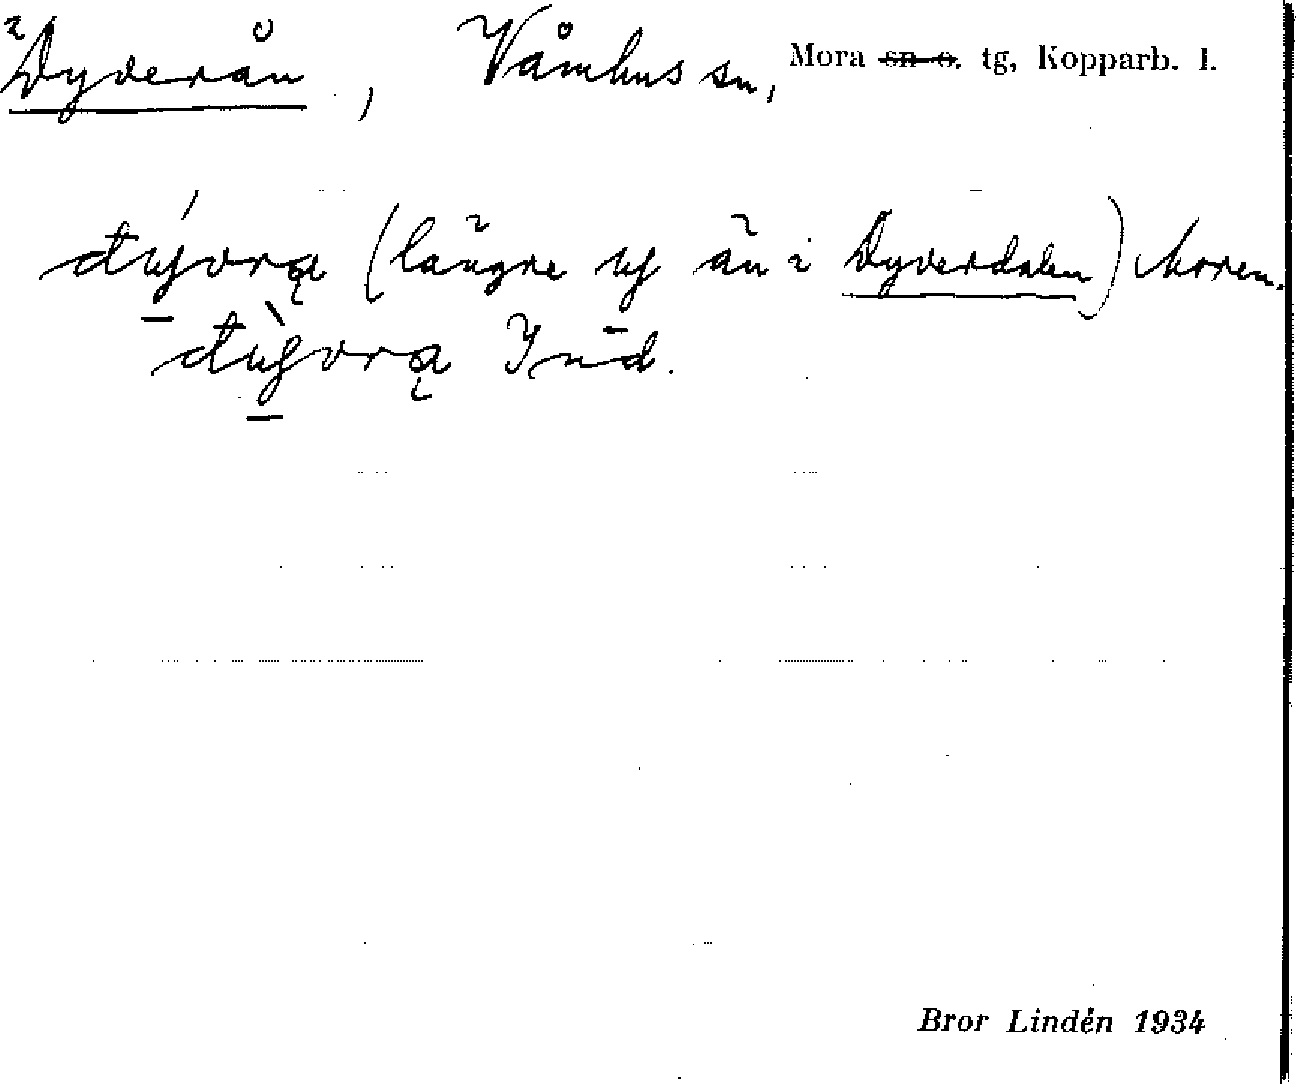 Dyverån, Våmhus sn, Mora sn o. tg, Kopparb. l.
dý̱vrą (längre y än i Dyverdalen) Moren.
dỳ̱vrą Ind.
Bror Lindén 1934